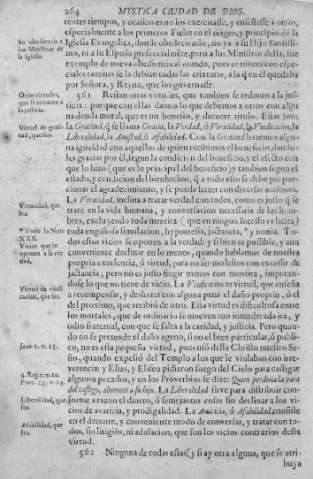 264 MYSTICA CIUDAD DE DIOS.
reales tiempos, y ocasiones no los exercitasse, y enseñasse a otros,
especialmente a los primeros Fieles en el origen, y principio de la
Iglesia Evangelica, donde obedeciendo, no ya a su Hijo Santissi-
mo, ni a su Esposo presencialmente, pero a los Ministros della, fue
exemplo de nueva obediencia al mundo, pues entonces con espe-
ciales razones le debian todas las criaturas, a la que en el quedaba
por Señora, y Reyna, que los governasse.
Su obediencia à
los Ministros de
la Iglesia.
561 Restan otras virtudes, que tambien se reducen a la jus-
ticia: porque con ellas damos lo que debemos a otros con algu
na deuda moral, que es un honesto, y decente titulo. Estas son:
la Gratitud, que se llama Gracia, la Verdad, ò Veracidad, la Vindicacion, la
Liberalidad, la Amistad, ò Afabilidad. Con la Gratitud hacemos algu-
na igualdad con aquellos de quien recibimos el beneficio, dando-
les gracias por èl, segun la condicion del beneficio, y el afecto con
que lo hizo (que es lo principal del beneficio) y tambien segun el
estado, y condicion del bienhechor, que a todo esso se debe pro-
porcionar el agradecimiento, y se puede hacer con diversas acciones.
Otras virtudes,
que se reducen a
la justicia.
Virtud de grati-
tud, que sea.
La Veracidad, inclina a tratar verdad con todos, como es justo que se
trate en la vida humana, y conversacion necessaria de los hom-
bres, excluyendo toda mentira (que en ningun sucesso es licita)
toda engañosa simulacion, hypocresia, jactancia, * y ironia. To-
dos estos vicios se oponen a la verdad; y si bien es possible, y aun
conveniente declinar en lo menos, quando hablamos de nuestra
propria excelencia, ò virtud, para no ser molestos con excesso de
jactancia; pero no es justo fingir menos con mentira, imputan-
dose lo que no tiene de vicio. La Vindicacion es virtud, que enseña
a recompensar, y deshacer con alguna pena el daño proprio, ò el
del proximo, que recibiò de otro. Esta virtud es dificultosa entre
los mortales, que de ordinario se mueven con inmoderada ira, y
odio fraternal, con que se falta a la caridad, y justicia. Pero quan-
do no se pretende el daño ageno, si no el bien particular, ò publi-
co, no es esta pequeña virtud, pues usò della Christo nuestro Se-
ñor, quando expeliò del Templo a los que le violaban con irre-
verencia; y Elias, y Eliseo pidieron fuego del Cielo para castigar
algunos pecados, y en los Proverbios se dize: Quien perdona la vara
del castigo, aborrece a su hijo. La Liberalidad sirve para distribuir con-
forme a razon el dinero, ò semejantes cosas sin declinar a los vi-
cios de avaricia, y prodigalidad. La Amicicia, ò Afabilidad, consiste
en el decente, y conveniente modo de conversar, y tratar con to-
dos, sin litigios, ni adulacion, que son los vicios contrarios desta
virtud.
Veracidad, que
sea.
* Vease la Nota
XXX.
Vicios que se
oponen a la ver
dad.
Virtud de vindi
cacion, que sea.
Liberalidad, que
sea.
Afabilidad, que
sea.
562 Ninguna de todas estas (y si ay otra alguna, que se atri-
buya